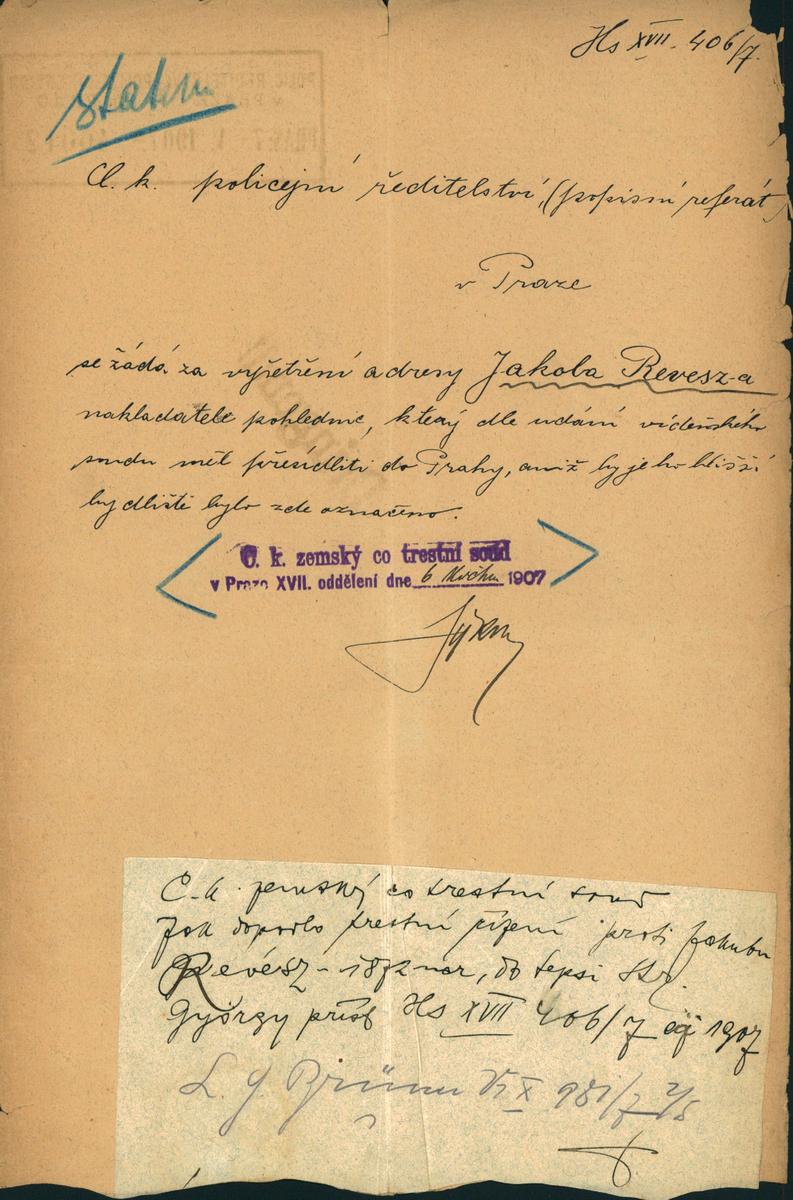 Hs XVII. 406/7.
statim
C. k. policejní ředitelství, (popisní referát)
v Praze
se žádá za vyšetření adresy Jakoba Revesz-a
nakladatele pohlednic, který dle udání vídeňského
soudu měl přesídliti do Prahy, aniž by jeho bližší
bydliště bylo zde označeno.
C. k. zemský co trestní soud
v Praze XVII. oddělení dne 6 května 1907
C. k. zemský co trestní soud
trestní řízení proti Jakubu
Revész - 1872 nar, do
György přísl Hs XVII 406/7 1907
L. G. Brünn Vr X 981/7 2/5